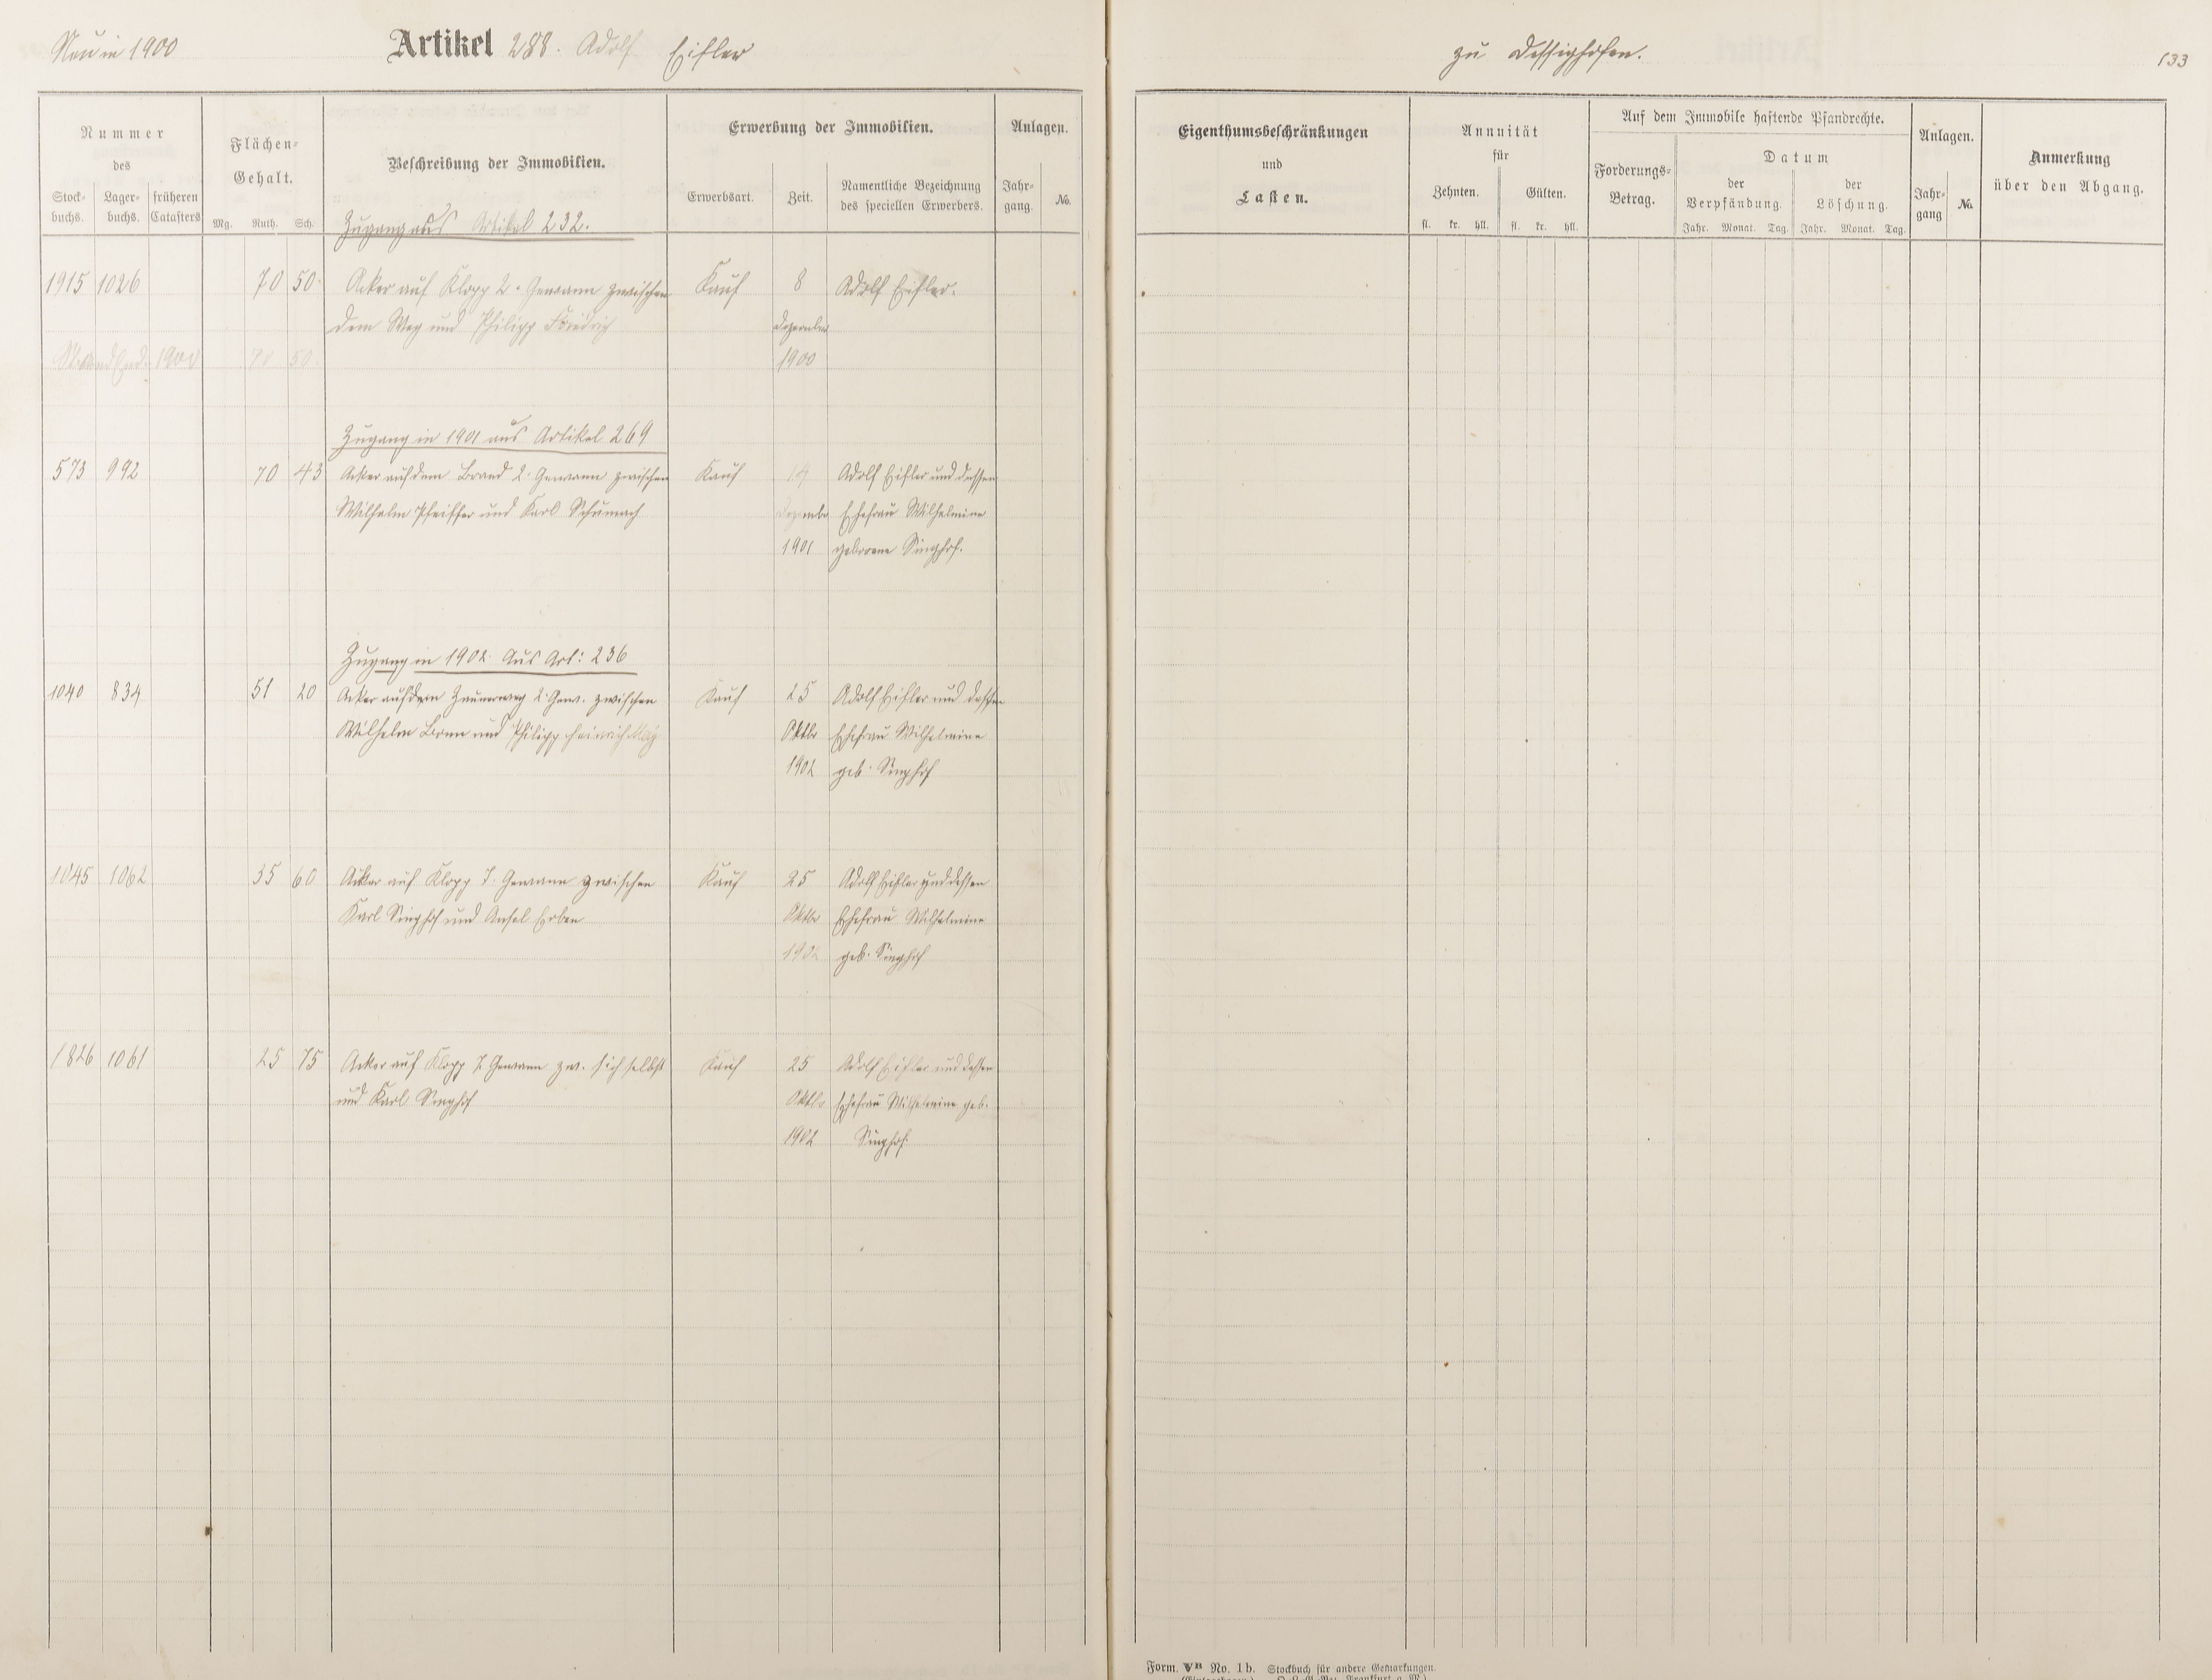 Neu in 1900
Artikel 288. Adolf Eisler
zu Dessighofen.
133
Nummer
des
Stock-
buchs.
Lager-
buchs.
früheren
Catasters
Flächen-
Gehalt.
Mg. Ruth. Sch.
Beschreibung der Immobilien.
Erwerbung der Immobilien.
Erwerbsart.
Zeit.
Namentliche Bezeichnung
des speciellen Erwerbers.
Anlagen.
Jahr-
gang.
No.
Eigenthumsbeschränkungen
und
Lasten.
Annuität
für
Zehnten.
Gülten.
fl. kr. hll. fl. kr. hll.
Auf dem Immobile haftende Pfandrechte.
Forderungs-
Betrag.
Datum
der
Verpfändung.
der
Löschung.
Jahr. Monat. Tag. Jahr. Monat. Tag.
Anlagen.
Jahr-
gang
No.
Anmerkung
über den Abgang.
Zugang aus Artikel 232.
1915 1026 70 50 Acker auf Klopp 2. Gewann zwischen Kauf 8 Adolf Eisler.
dem Weg und Philipp Friedrich Dezember
Stand End. 1900 70 50. 1900
Zugang in 1901 aus Artikel 269
573 992 70 43 Acker auf dem Brand 2. Gewann zwischen Kauf 14 Adolf Eisler und dessen
Wilhelm Pfeiffer und Karl Schumach Dezember Ehefrau Wilhelmine
1901 geborene Singhof.
Zugang in 1902 Aus Art: 236
1040 834 51 20 Acker auf dem 2. Gew. zwischen Kauf 25 Adolf Eisler und dessen
Wilhelm Bonn und Philipp Heinrich May Oktbr Ehefrau Wilhelmine
1902 geb. Singhof
1045 1062 35 60 Acker auf Klopp 7. Gewann zwischen Kauf 25 Adolf Eisler und dessen
Karl Singhof und Ansel Erben Oktbr Ehefrau Wilhelmine
1902 geb. Singhof
1826 1061 25 75 Acker auf Klopp 7. Gewann zw. sich selbst Kauf 25 Adolf Eisler und dessen
und Karl Singhof Oktbr Ehefrau Wilhelmine geb.
1902 Singhof.
Form. VB No. 1b. Stockbuch für andere Gemarkungen.